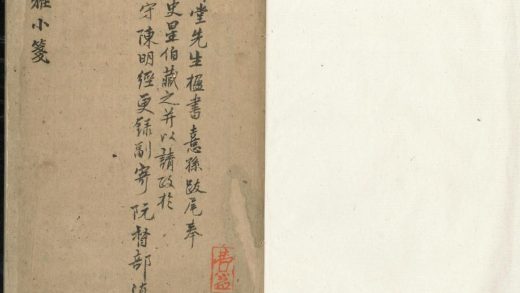 堂先生楹書憙孫跋尾奉
史星伯藏之并以請政於
守陳明經更錄副寄阮督部
雅小箋